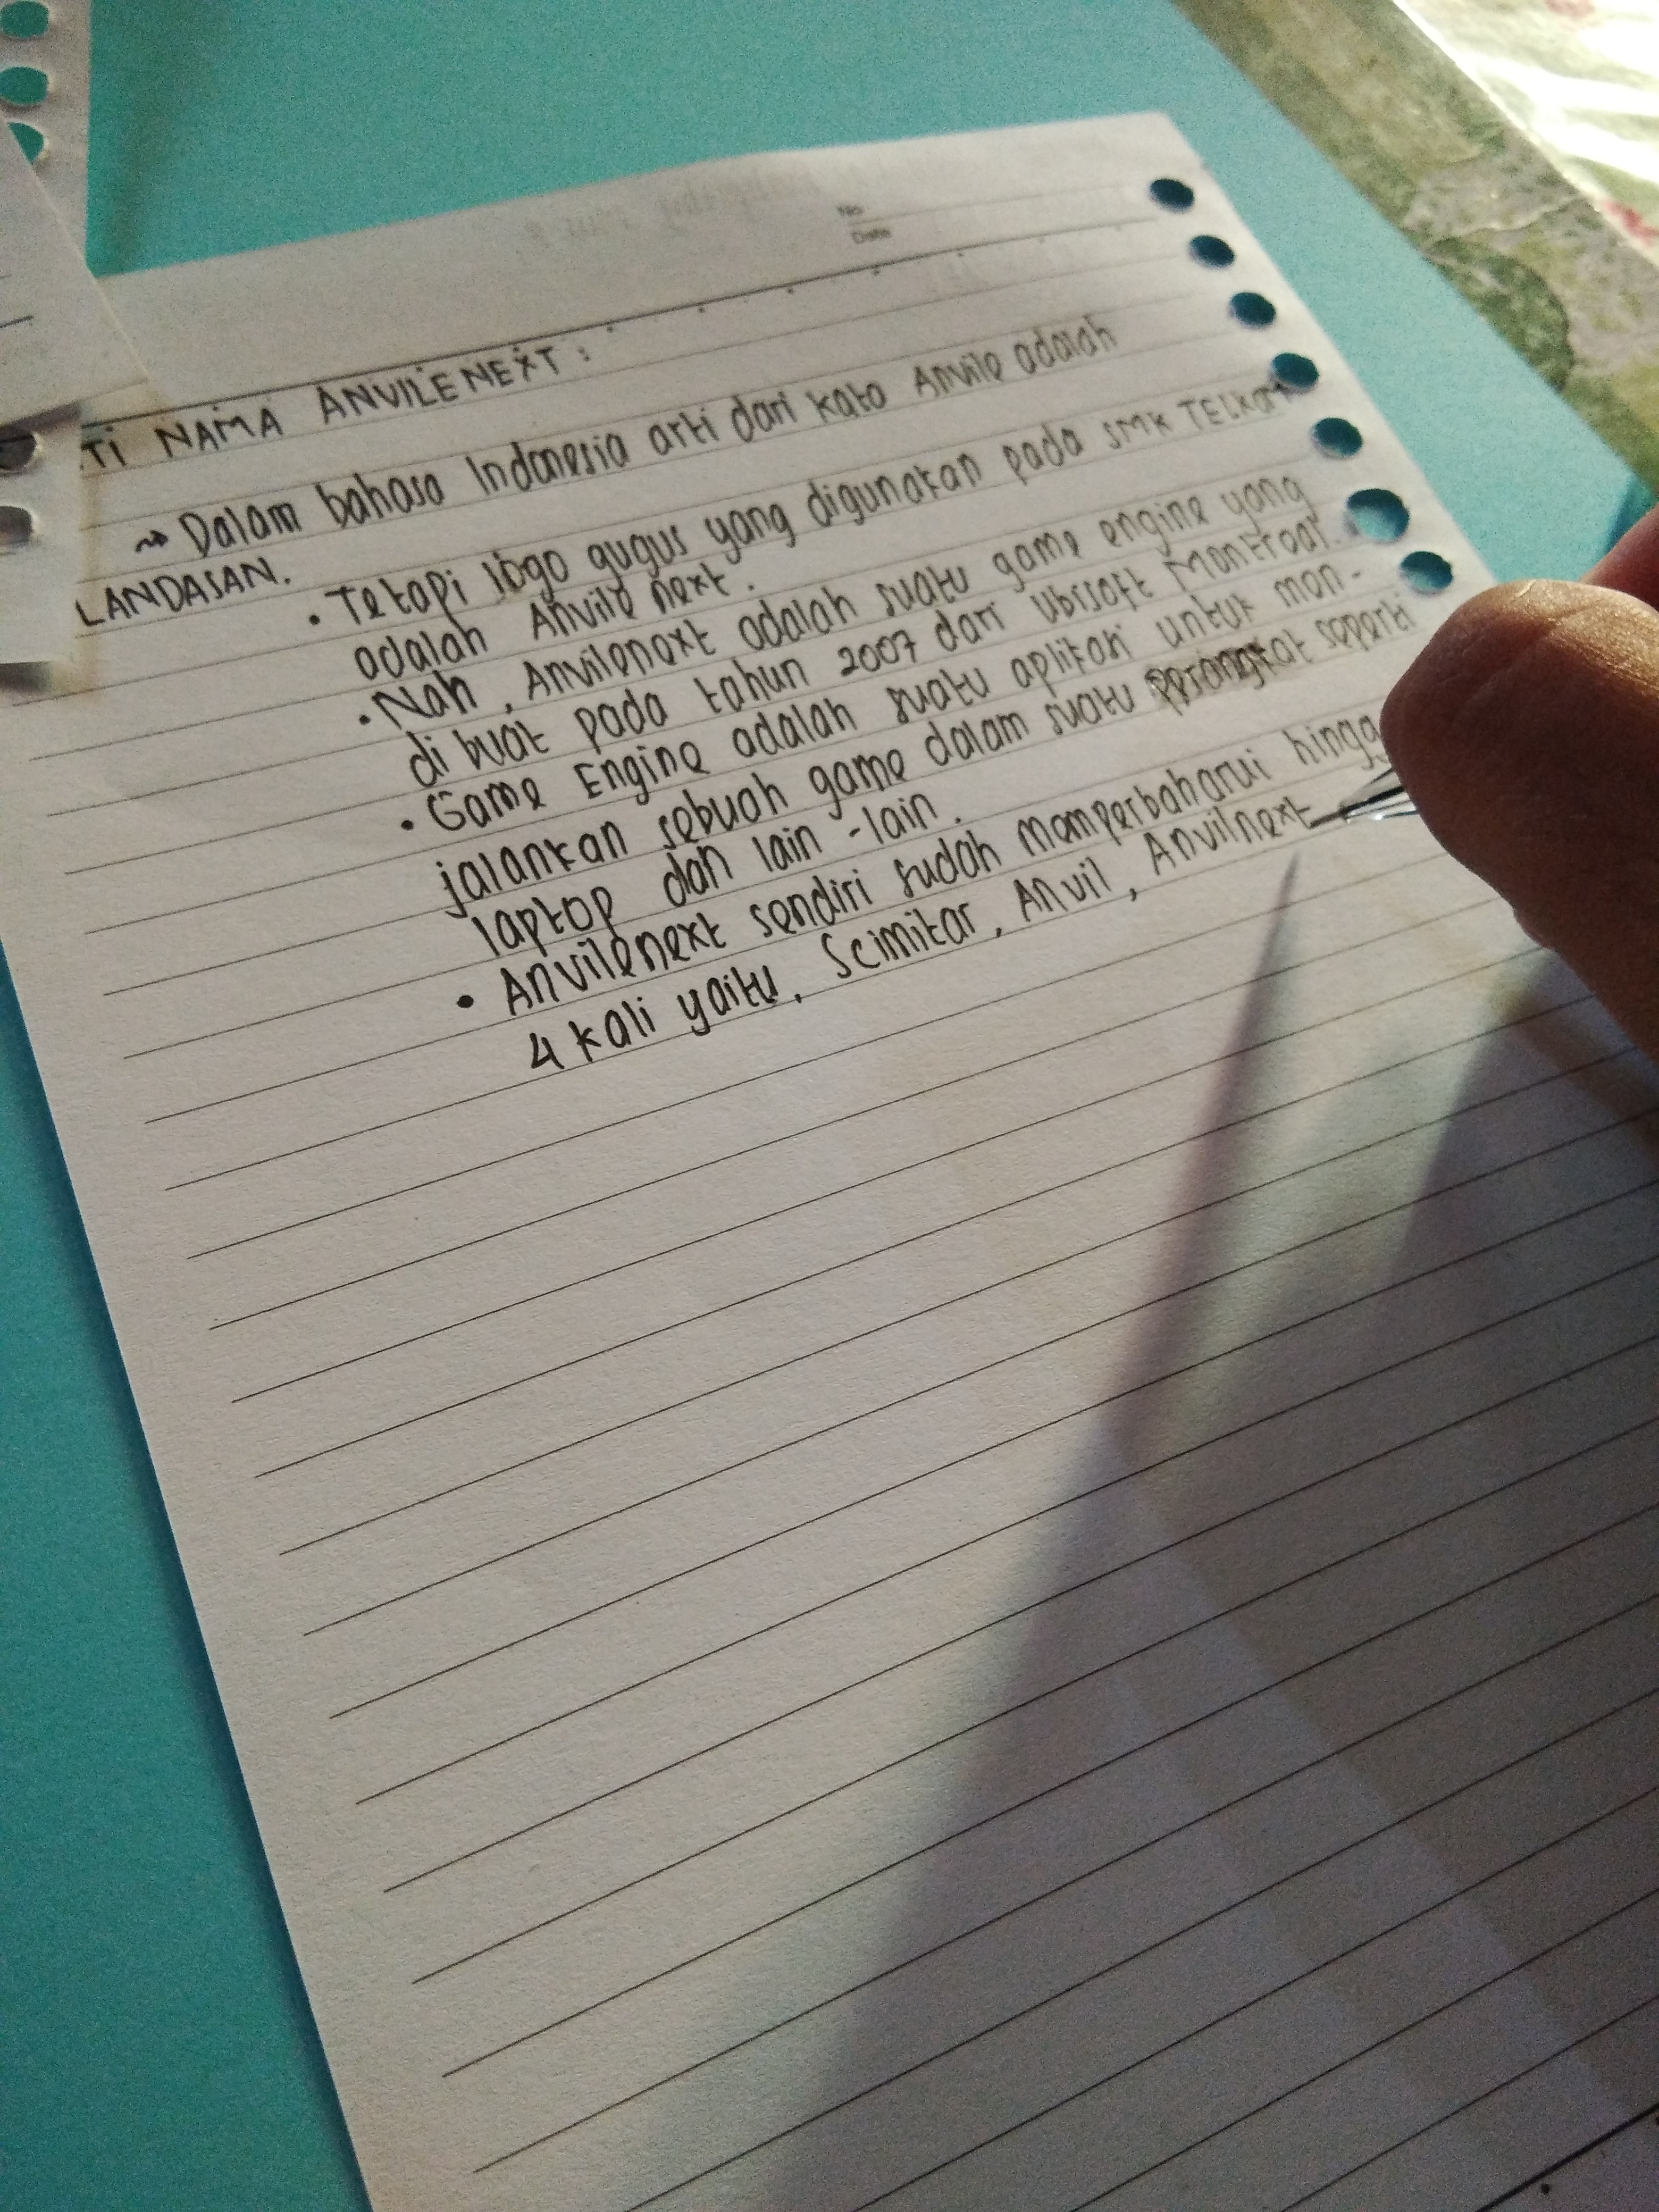 No
Date
TI NAMA ANVILENEXT :
→ Dalam bahasa Indonesia arti dari kata Anvile adalah
LANDASAN.
• Tetapi logo gugus yang digunakan pada SMK TELKOM
adalah Anvile next.
• Nah, Anvilenext adalah suatu game engine yang
di buat pada tahun 2007 dari Ubisoft Montreal.
• Game Engine adalah suatu aplikasi untuk men-
jalankan sebuah game dalam suatu perangkat seperti
laptop dan lain-lain.
• Anvilenext sendiri sudah memperbaharui hingga
4 kali yaitu, Scimitar, Anvil, Anvilnext